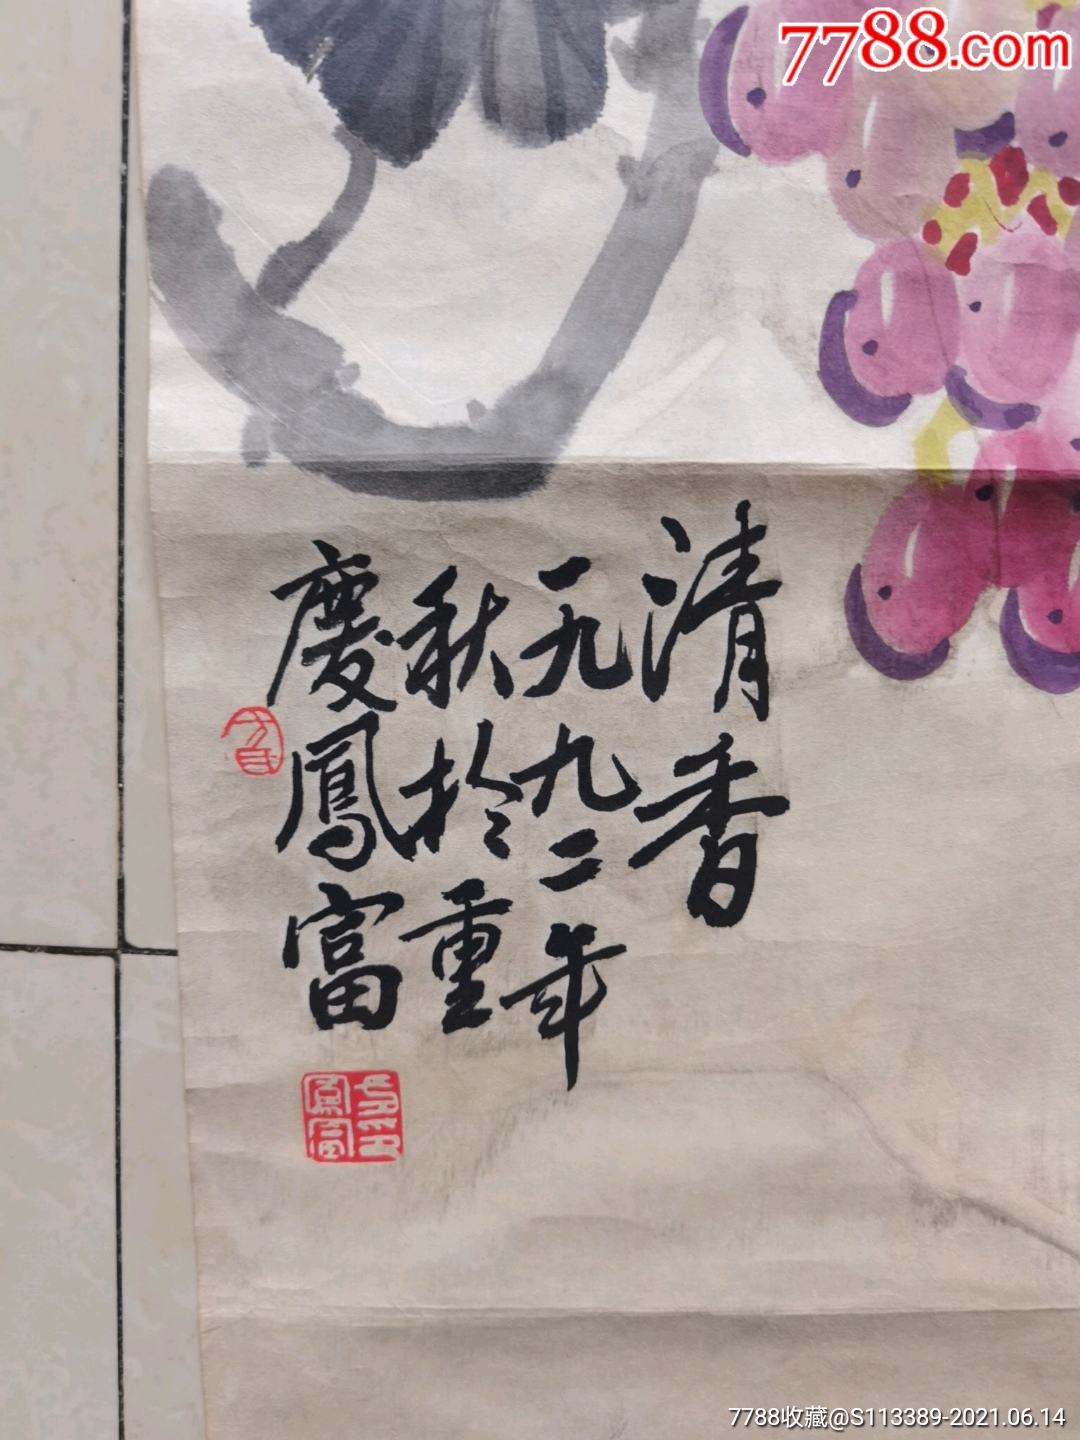 7788.com
清香
一九九二年
秋於重
慶鳳富
7788收藏@S113389-2021.06.14